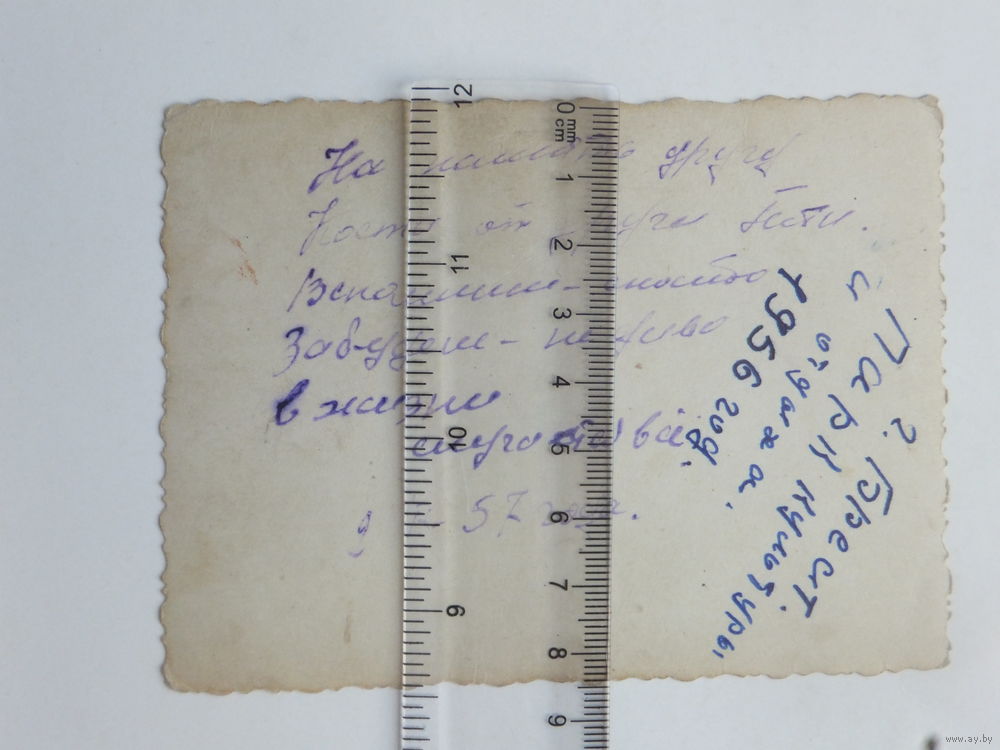 На память другу
Косте от друга
Вспомнишь - спасибо
Забудешь - не диво
в жизни
случается всё.
57 года.
г. Брест
Парк культуры
и
отдыха.
1956 год
12
11
10
9
0
mm
cm
1
2
3
4
5
6
7
8
9
www.ay.by